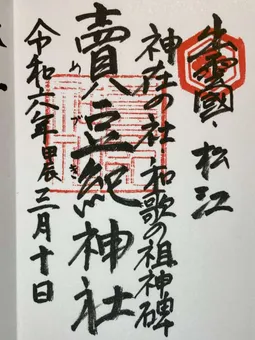 出雲國・松江
神在の社・和歌の祖神碑
賣豆紀神社
めづき
令和六年甲辰三月十日